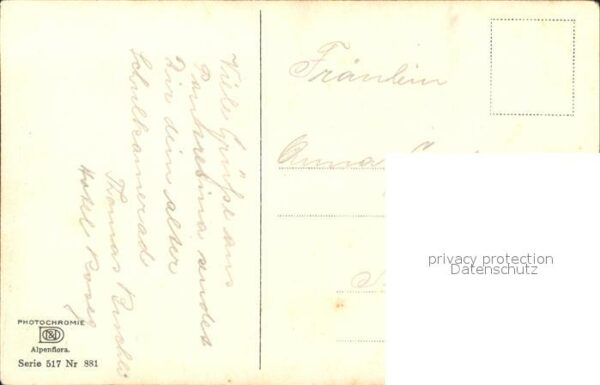 Viele Grüße aus
Pontresina sendet
Dir dein alter
Schulkamerad
Thomas
Hotel Roseg
Fräulein
Anna
privacy protection
Datenschutz
PHOTOCHROMIE
Alpenflora.
Serie 517 Nr 881